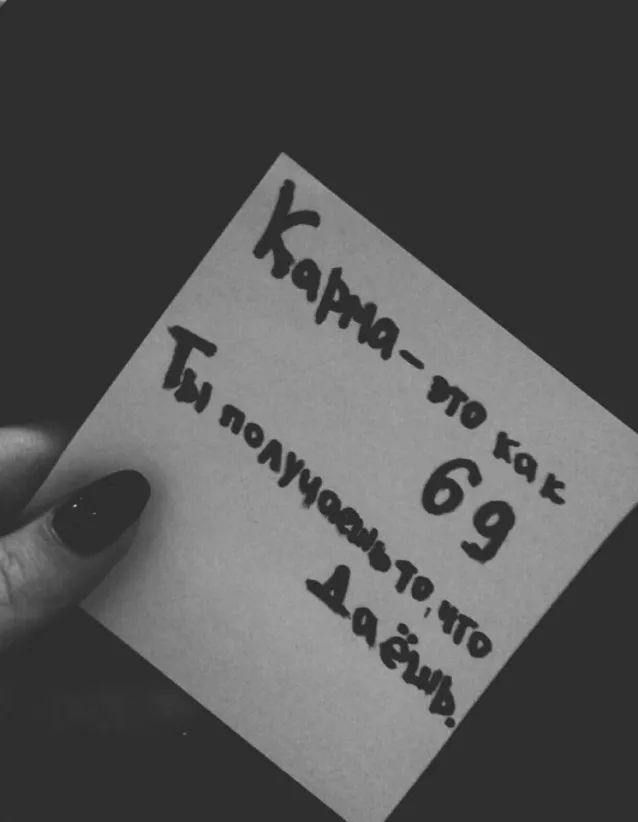 Карма – это как
69
Ты получаешь то, что
даёшь.